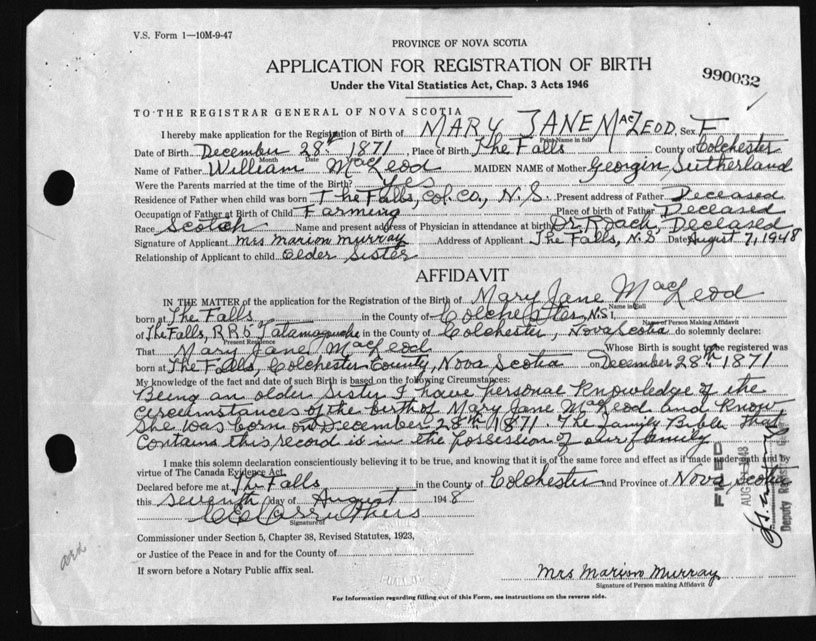 V.S. Form 1—10M-9-47
PROVINCE OF NOVA SCOTIA
APPLICATION FOR REGISTRATION OF BIRTH
990032
Under the Vital Statistics Act, Chap. 3 Acts 1946
TO THE REGISTRAR GENERAL OF NOVA SCOTIA
I hereby make application for the Registration of Birth of MARY JANE MacLEOD, Sex F
Print Name in full
Date of Birth December 28th 1871, Place of Birth The Falls County of Colchester
Month Date
Name of Father William MacLeod MAIDEN NAME of Mother Georgin Sutherland
Were the Parents married at the time of the Birth? Yes
Residence of Father when child was born The Falls, Col. Co., N.S. Present address of Father Deceased
Occupation of Father at Birth of Child Farming Place of birth of Father Deceased
Race Scotch Name and present address of Physician in attendance at birth Dr. Roach, Deceased
Signature of Applicant Mrs Marion Murray Address of Applicant The Falls, N.S Date August 7, 1948
Relationship of Applicant to child Older Sister
AFFIDAVIT
IN THE MATTER of the application for the Registration of the Birth of Mary Jane MacLeod
Name in full
born at The Falls in the County of Colchester, N.S.,
Name of Person Making Affidavit
of The Falls, RR5 Tatamagouche in the County of Colchester, Nova Scotia do solemnly declare:
Present Residence
That Mary Jane MacLeod Whose Birth is sought to be registered was
born at The Falls, Colchester County, Nova Scotia on December 28th 1871
My knowledge of the fact and date of such Birth is based on the following Circumstances:
Being an older Sisty I have personal knowledge of the
circumstances of the birth of Mary Jane MacLeod and know
She was born on December 28th 1871. The family Bible that
contains this record is in the possession of our family
I make this solemn declaration conscientiously believing it to be true, and knowing that it is of the same force and effect as if made under oath and by
virtue of The Canada Evidence Act.
Declared before me at The Falls in the County of Colchester and Province of Nova Scotia
this seventh day of August 1948
C E Carruthers
Signature of
FILED
AUG 1948
Deputy
Commissioner under Section 5, Chapter 38, Revised Statutes, 1923,
or Justice of the Peace in and for the County of
If sworn before a Notary Public affix seal.
Mrs Marion Murray
Signature of Person making Affidavit
For Information regarding filling out of this Form, see instructions on the reverse side.